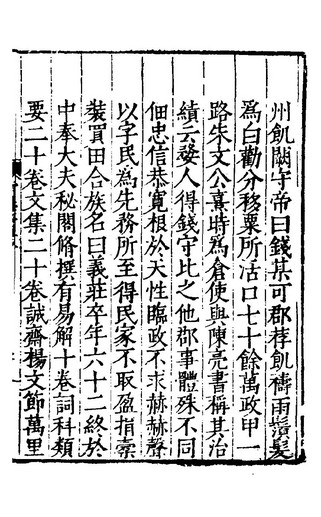 州飢闕守帝曰錢某可郡荐飢禱雨鬚髮
爲白勸分移粟所活口七十餘萬政甲一
路朱文公熹時爲倉使與陳亮書稱其治
績云發人得錢守比之他郡事體殊不同
佃忠信恭寬根於天性臨政不求赫赫聲
以字民爲先務所至得民家不取盈指橐
裝買田合族名曰義莊卒年六十二終於
中奉大夫秘閣脩撰有易解十卷詞科類
要二十卷文集二十卷誠齋楊文節萬里